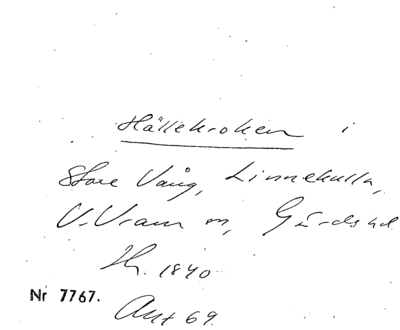 Hällekroken i
Store Vång, Linnekulla,
V. Vram sn, Gärds hd.
Th. 1840
Nr 7767.
Ant 69.